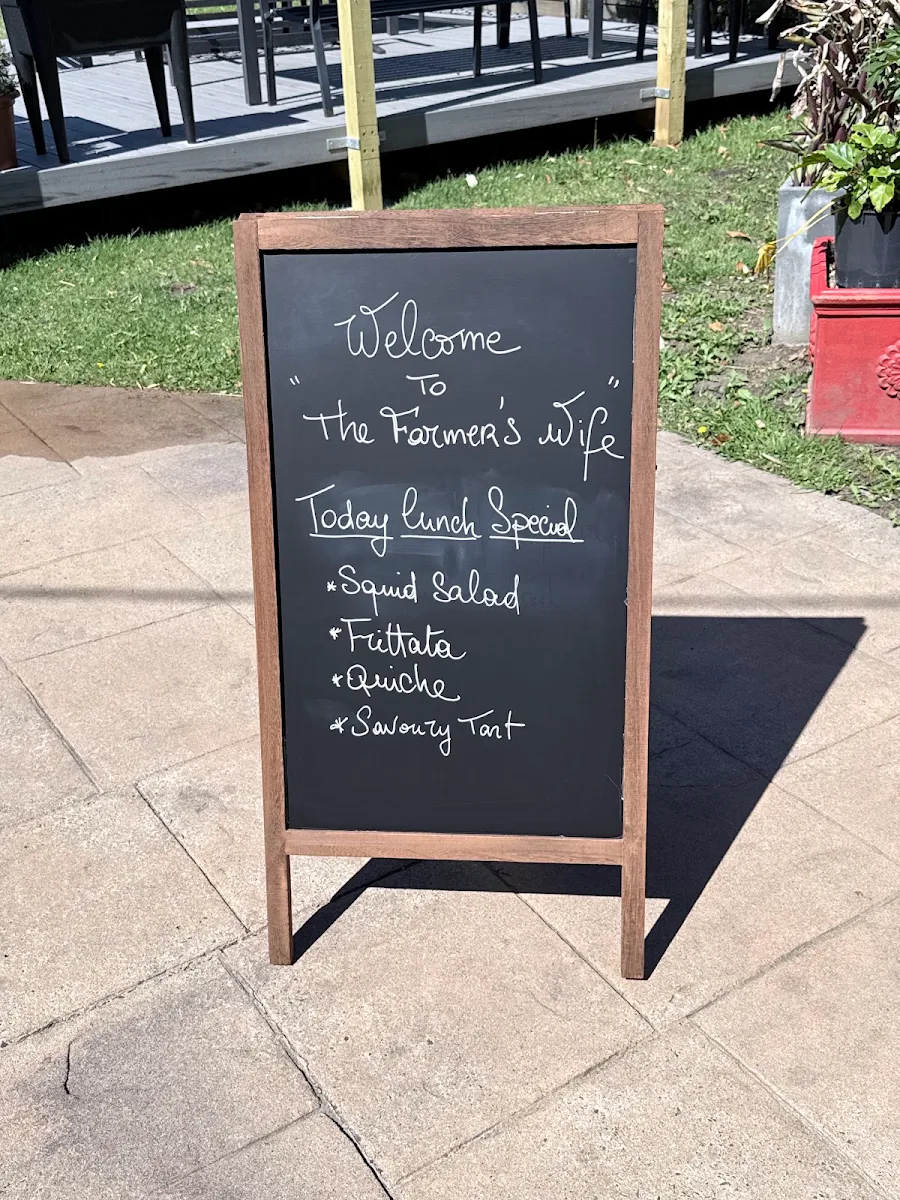 Welcome
To
"The Farmer's Wife"
Today Lunch Special
*Squid Salad
*Frittata
*Quiche
*Savoury Tart